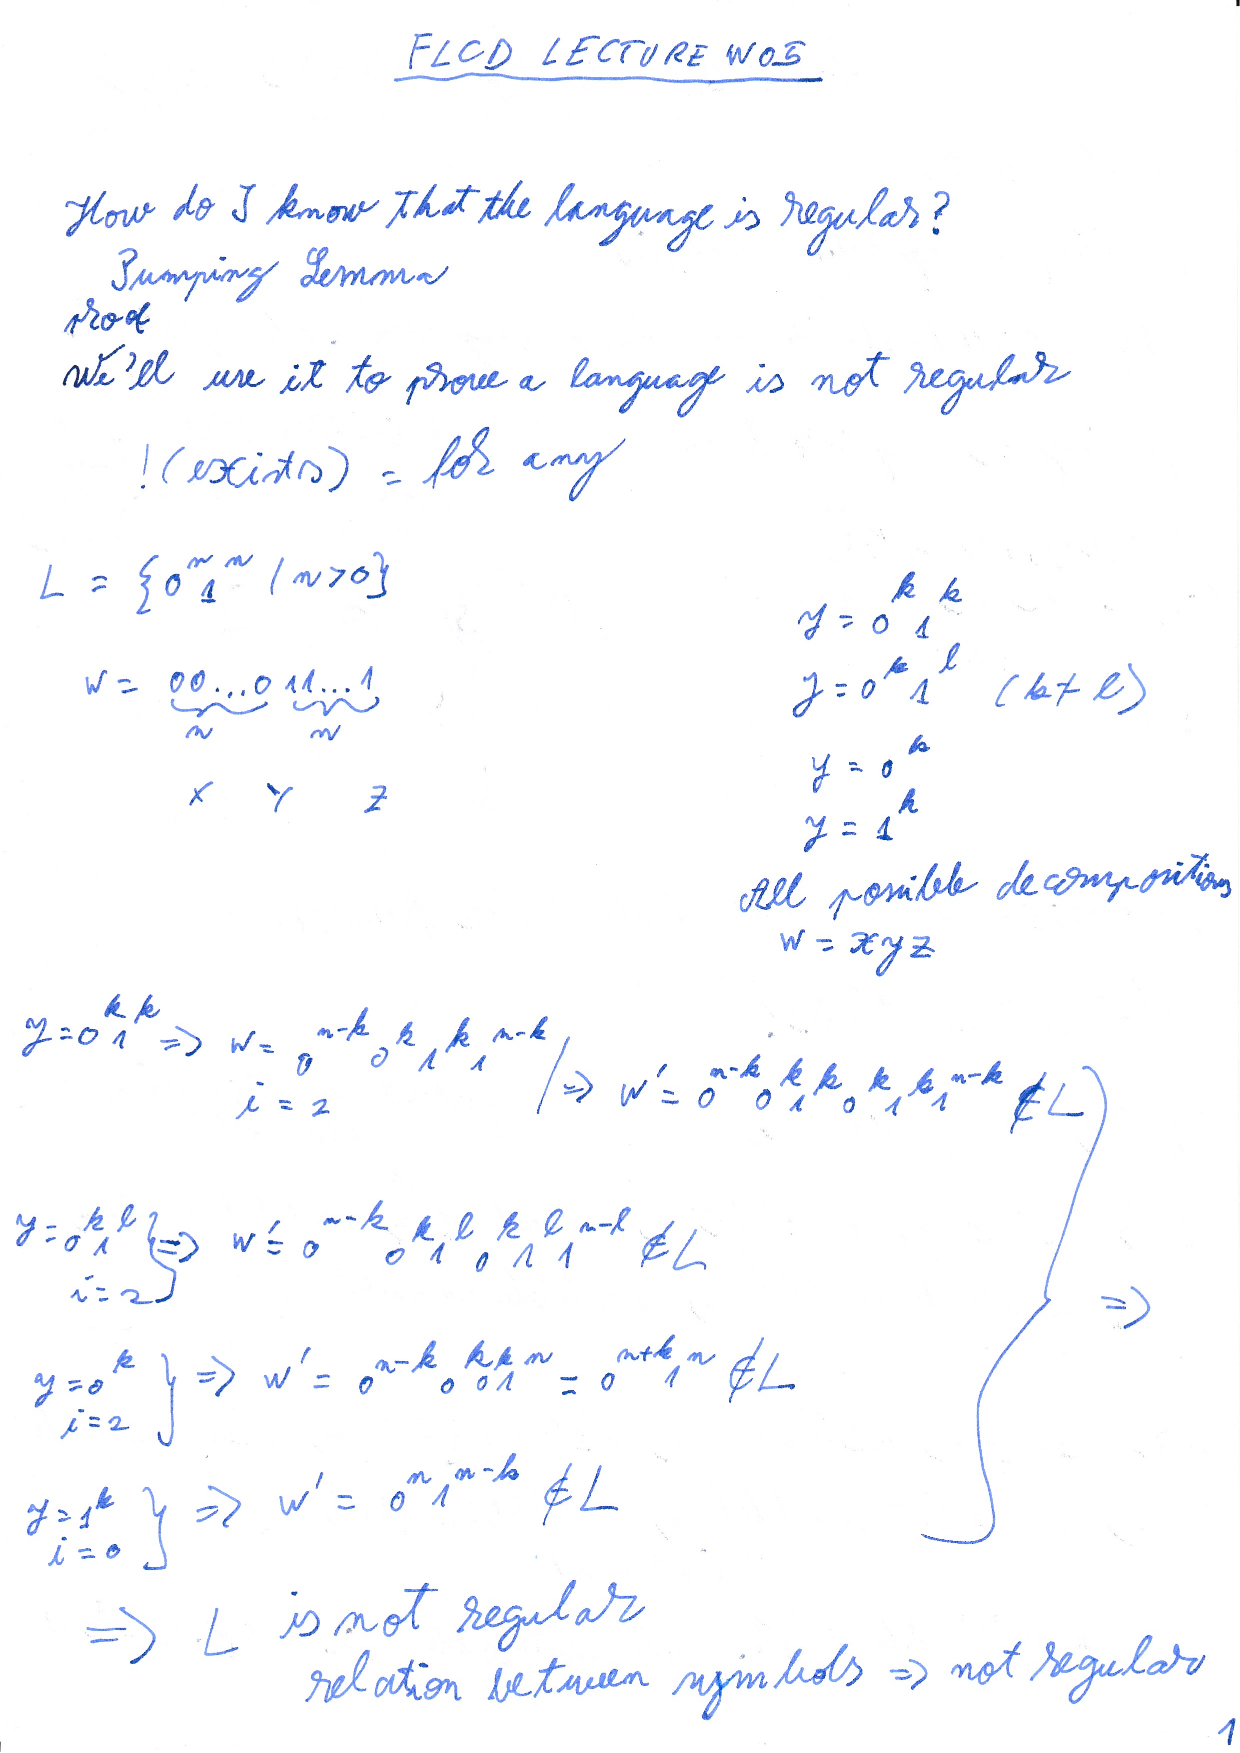 FLCD LECTURE W05
How do I know that the language is regular?
Pumping Lemma
We'll use it to prove a language is not regular
!(exists) = for any
L = {0^n 1^n / n>0}
w = 00...0 11...1
n n
X Y Z
y = 0^k 1^k
y = 0^k 1^l (k≠l)
y = 0^k
y = 1^k
All possible decompositions
w = xyz
y = 0^k 1^k => w = 0^{n-k} 0^k 1^k 1^{n-k}
i = 2
=> w' = 0^{n-k} 0^k 1^k 0^k 1^k 1^{n-k} ∉ L
y = 0^k 1^l } => w' = 0^{n-k} 0^k 1^l 0^k 1^l 1^{n-l} ∉ L
i = 2
=>
y = 0^k } => w' = 0^{n-k} 0^k 0^k 1^n = 0^{n+k} 1^n ∉ L
i = 2
y = 1^k } => w' = 0^n 1^{n-k} ∉ L
i = 0
=> L is not regular
relation between symbols => not regular
1